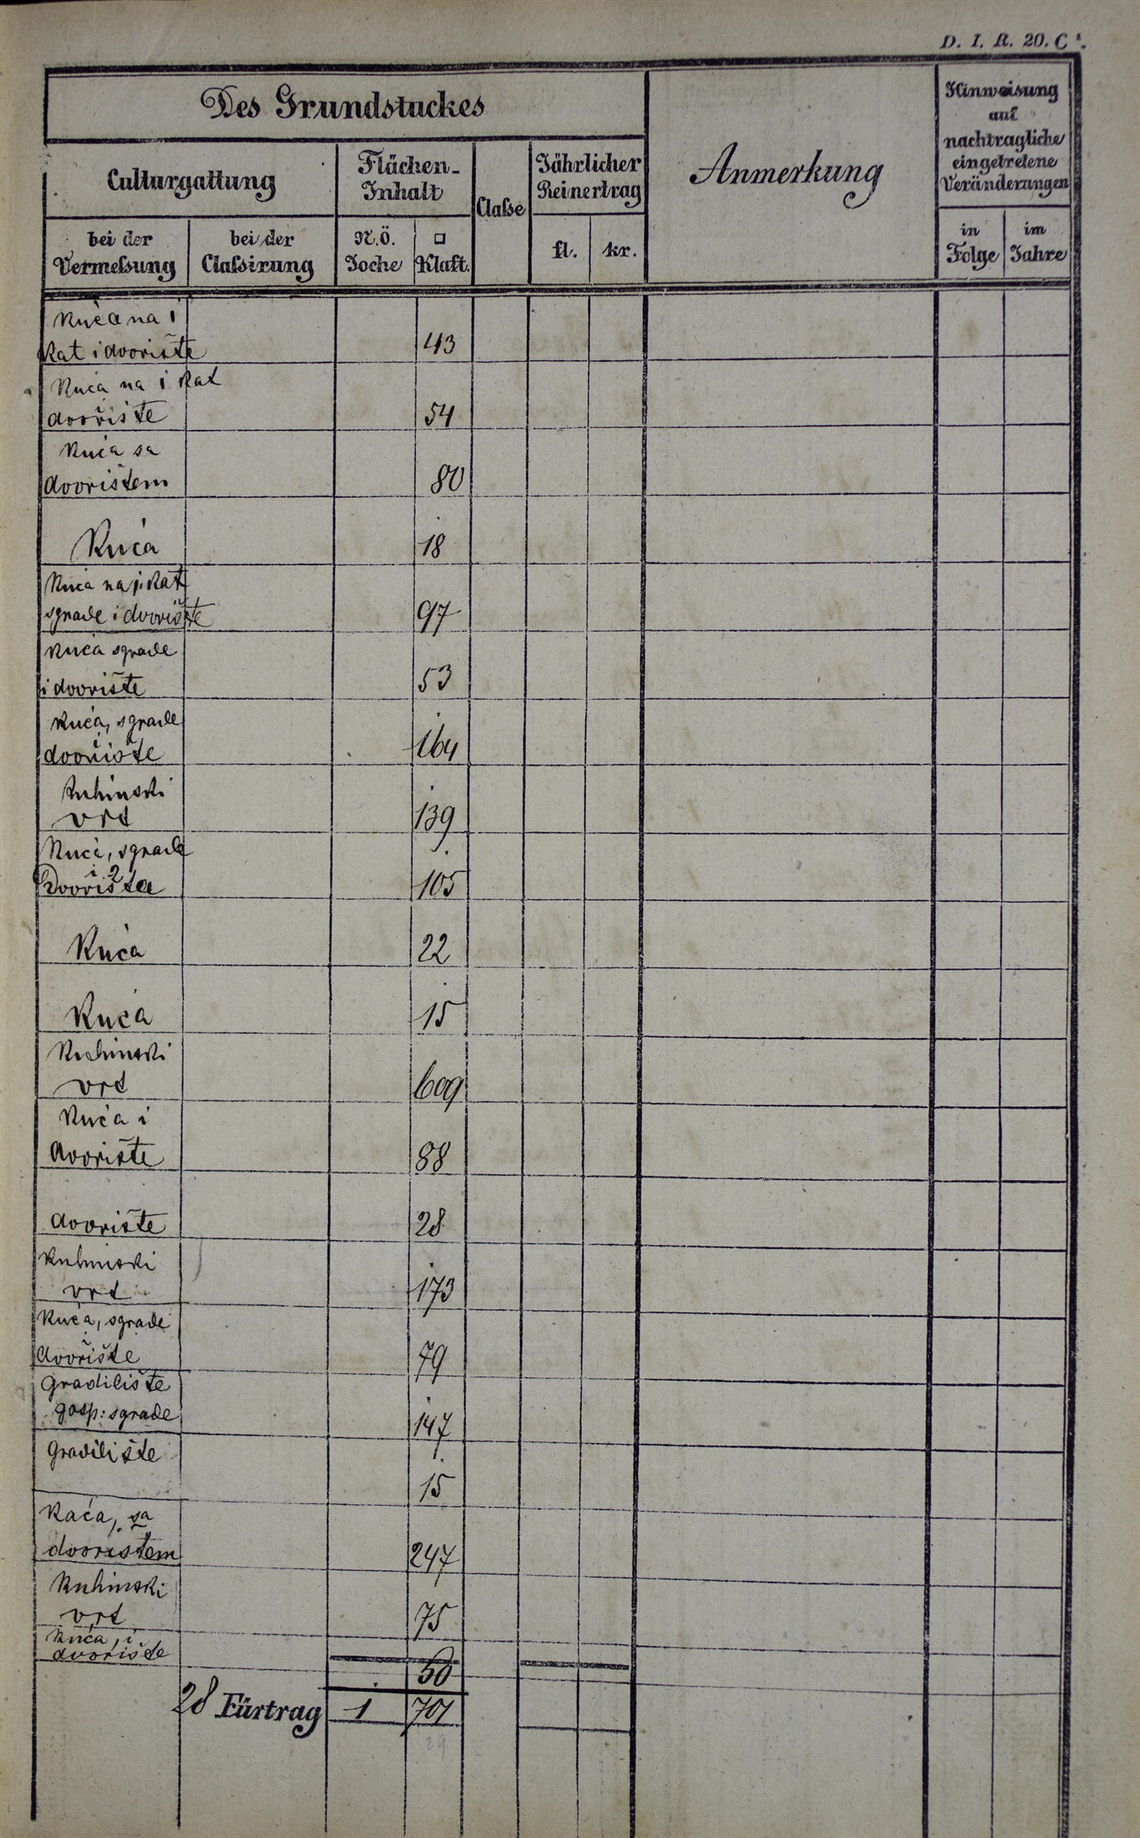 D. I. R. 20. C¹.
Des Grundstuckes
Anmerkung
Hinweisung
auf
nachtragliche
eingetretene
Veränderungen
Culturgattung
Flächen-
Inhalt
Claſse
Jährlicher
Reinertrag
bei der
Vermeſsung
bei der
Claſsirung
N.Ö.
Joche
□
Klaft.
fl.
kr.
in
Folge
im
Jahre
Kuća na i
kat i dvorište 43
Kuća na i kat
dvorište 54
Kuća sa
dvorištem 80
Kuća 18
Kuća na i kat
sgrade i dvorište 97
Kuća sgrade
i dvorište 53
Kuća, sgrade
dvorište 164
Kuhinski
vrt 139
Kuća, sgrade
i 2
Dvorišta 105
Kuća 22
Kuća 15
Kuhinski
vrt 609
Kuća i
dvorište 88
dvorište 28
Kuhinski
vrt 173
Kuća, sgrade
dvorište 79
Gradilište
gosp: sgrade 147
Gradilište
15
Kuća, sa
dvorištem 247
Kuhinski
vrt 75
Kuća, i
dvorište 50
28 Fürtrag 1 701